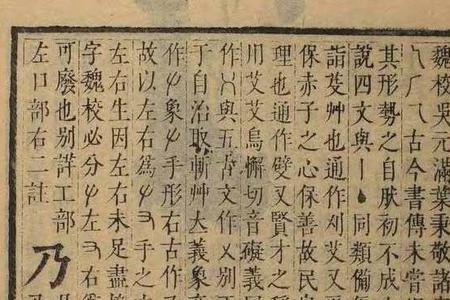 魏校吳元滿葉秉敬諸
古今書傳未嘗
其形勢之自朕初不成
說四文與丨亅同類備
詣芟艸也通作刈艾又
保赤子之心保善故民
理也通作嬖又賢才之
用艾艾鳥懈切音礙義
作㐅與五古文作㐅別
于自治取斬艸大義象
作𠂇象𠂇手形右古作
故以左右爲𠂇彐手之
左右生因左右未足盡
字魏校必分𠂇左彐右
可廢也別詳工部
左口部右二註
乃